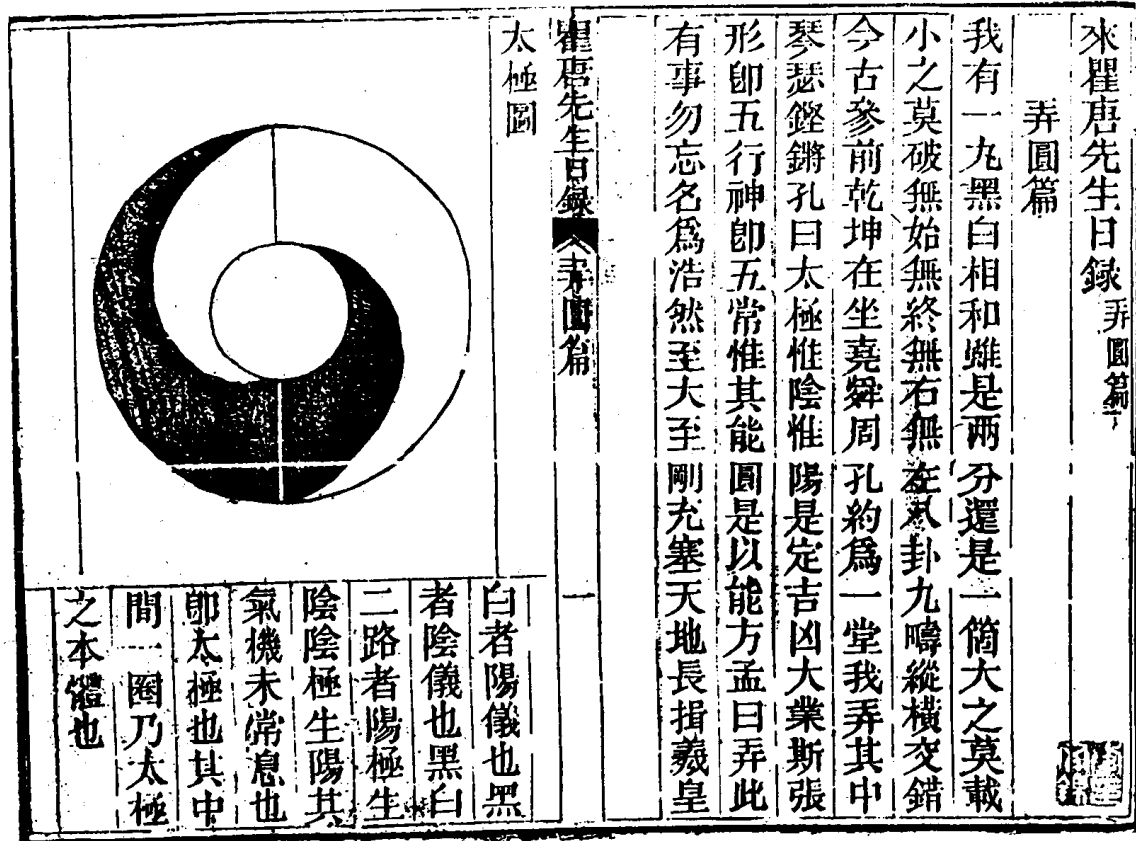 來瞿唐先生日録 弄圓篇
弄圓篇
我有一丸黑白相和雖是兩分還是一箇大之莫載
小之莫破無始無終無右無左八卦九疇縱橫交錯
今古參前乾坤在坐堯舜周孔約爲一堂我弄其中
琴瑟鏗鏘孔曰太極惟陰惟陽是定吉凶大業斯張
形卽五行神卽五常惟其能圓是以能方孟曰弄此
有事勿忘名爲浩然至大至剛充塞天地長揖羲皇
瞿唐先生日録 弄圓篇 一
太極圖
白者陽儀也黑
者陰儀也黑白
二路者陽極生
陰陰極生陽其
氣機未常息也
卽太極也其中
間一圈乃太極
之本體也